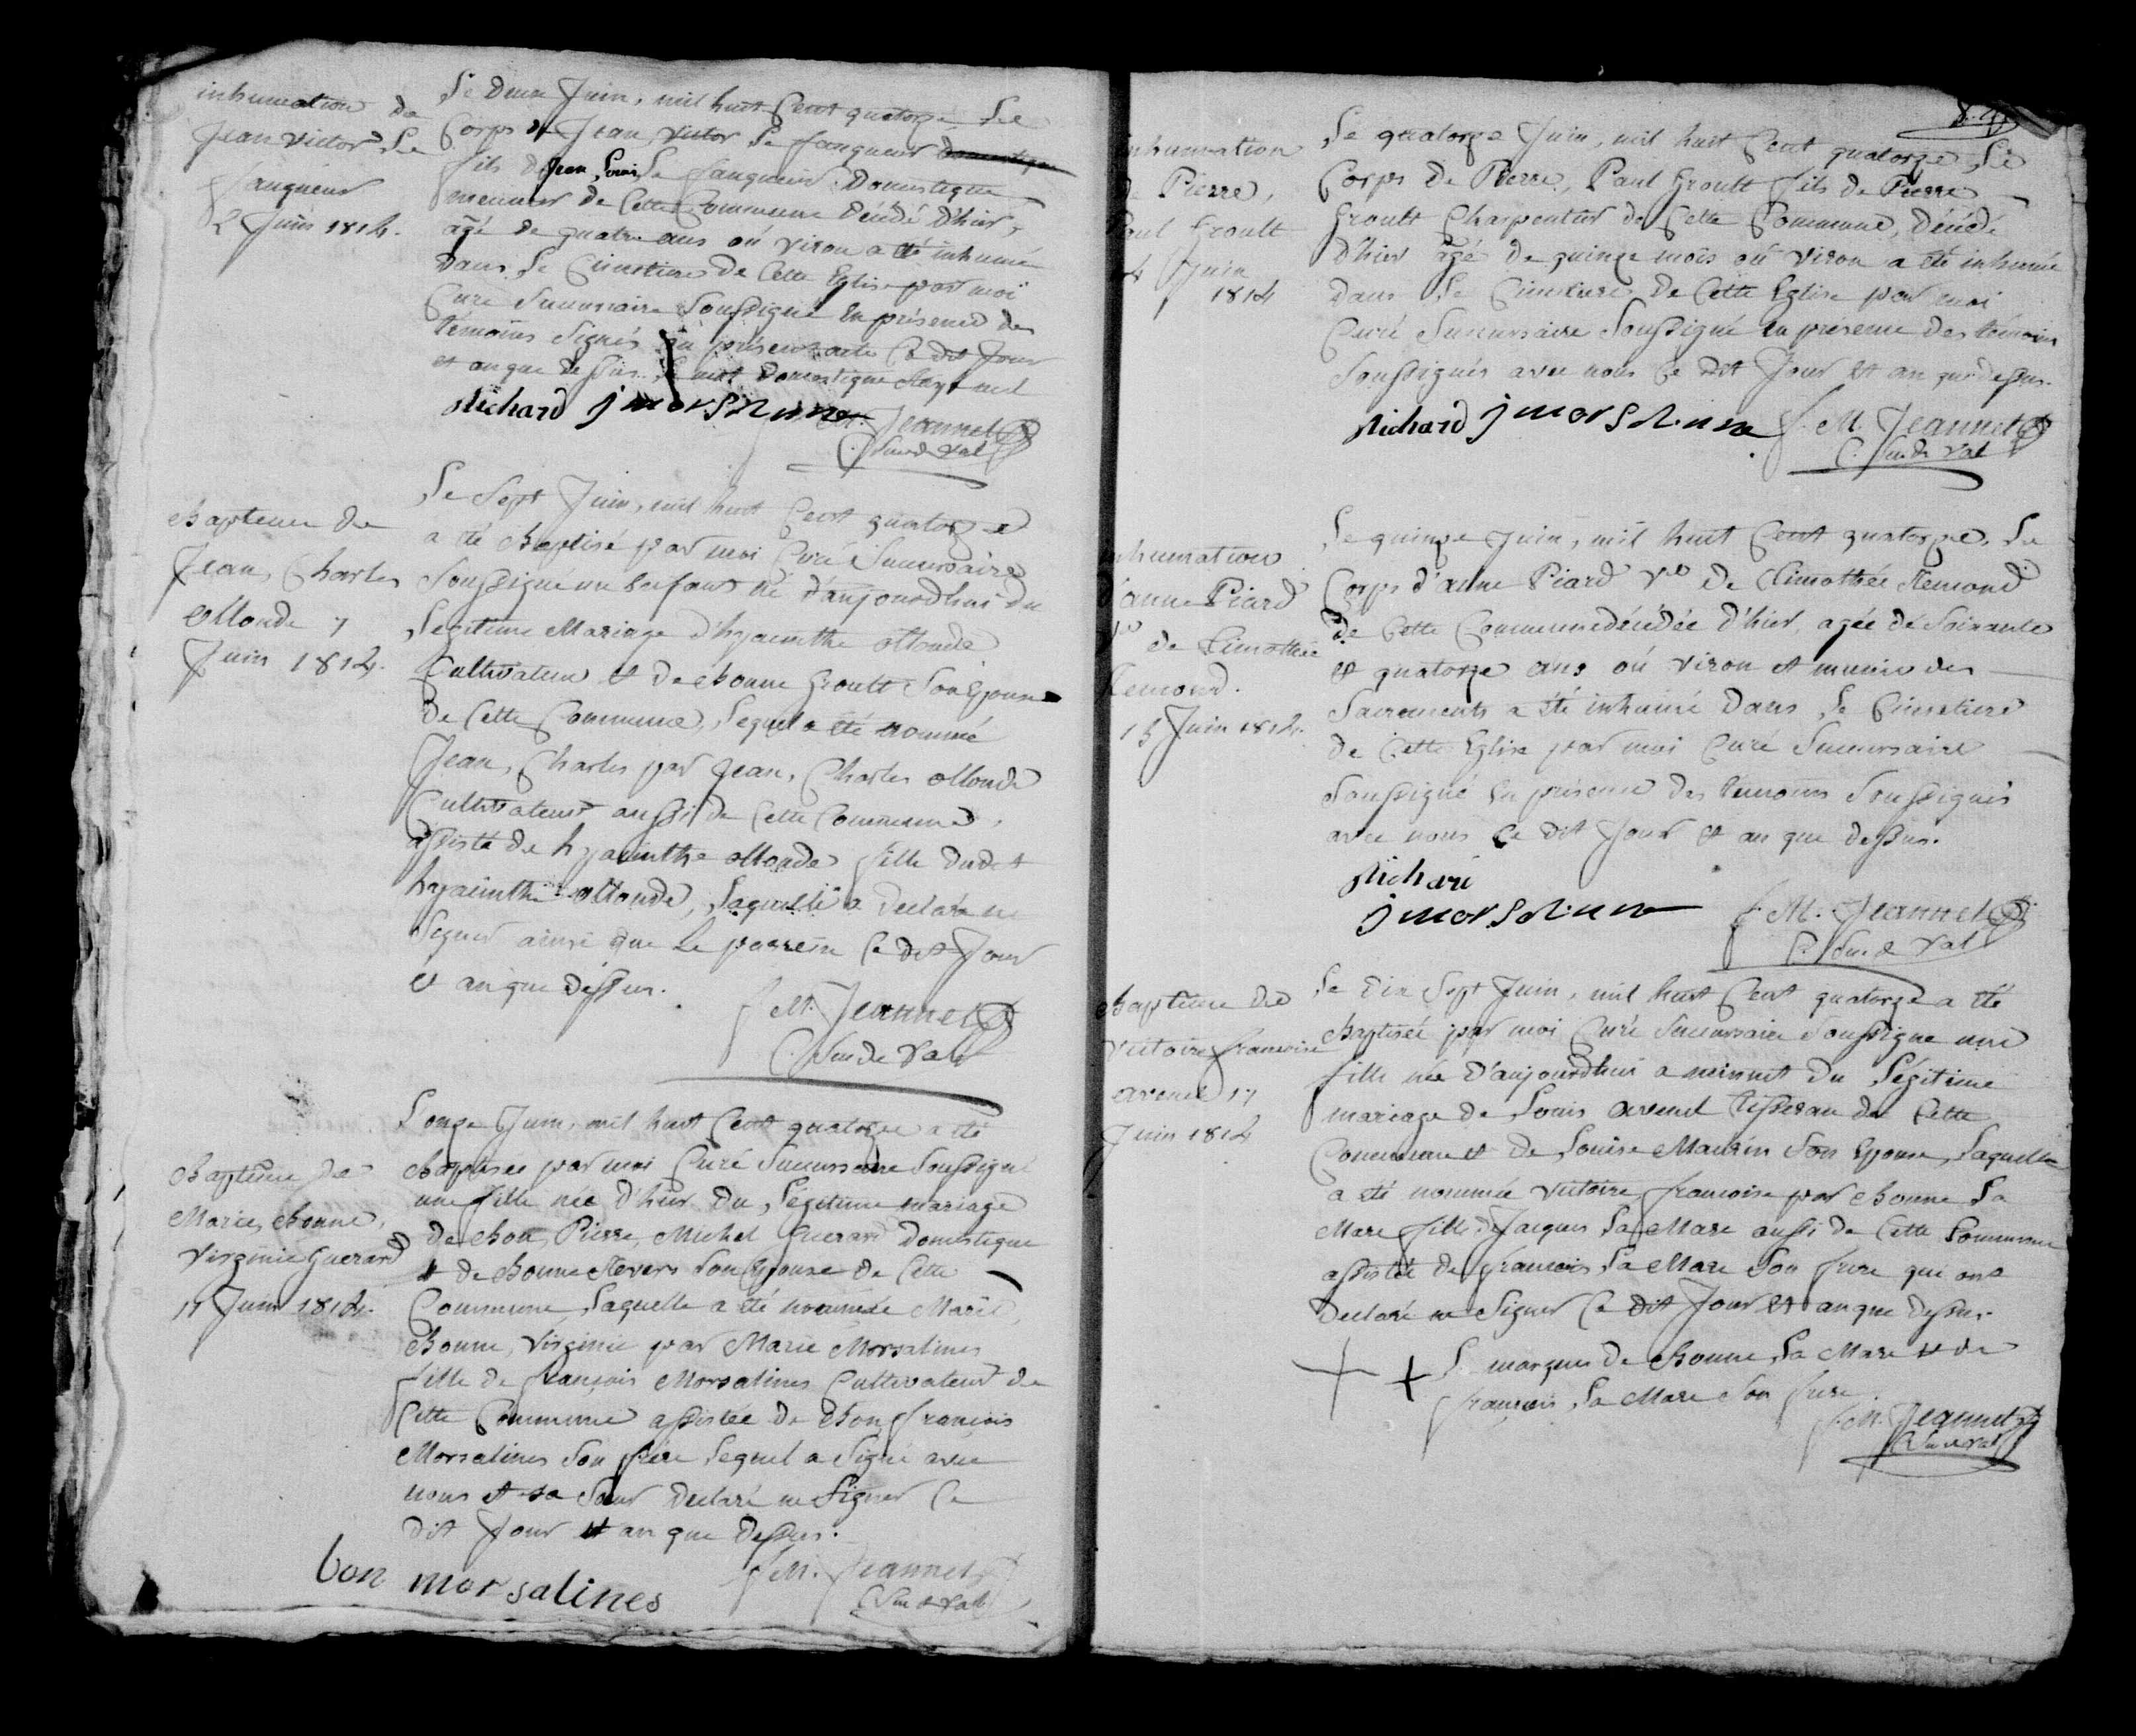 inhumation de
Jean Victor Le
fanqueur
2 Juin 1814.
Le deux Juin, mil huit Cent quatorze Le
Corps de Jean Victor Le fanqueur
fils de Jean Louis Le fanqueur Domestique
meunier de Cette Commune décédé d'hier,
agé de quatre ans où viron a été inhumé
dans Le Cimetiere de Cette Eglise par moi
Curé Succursaire Soussigné en présence des
témoins Signés au présent acte Ce dit Jour
et an que dessus. Le mot Domestique Rayé nul
Richard j morsalines f. M. Jeannet
C. Suc de Val
Bapteme de
Jean, Charles
ollonde 7
Juin 1814.
Le Sept Juin, mil huit Cent quatorze
a été Baptisé par moi Curé Succursaire
Soussigné un Enfant né d'aujourdhui du
Legitime Mariage d'hyacinthe ollonde
Cultivateur et de Bonne Groult Son Epouse
de Cette Commune, Lequel a été nommé
Jean, Charles par Jean, Charles ollonde
Cultivateur aussi de Cette Commune,
assisté de hyacinthe ollonde fille dudit
hyacinthe ollonde, Laquelle a Declaré ne
Signer ainsi que Le parrein Ce dit Jour
et an que dessus.
f. M. Jeannet
C. Suc de Val
Bapteme de
Marie, Bonne,
Virginie Guerard
11 Juin 1814.
L'onze Juin, mil huit Cent quatorze a été
Baptisée par moi Curé Succursaire Soussigné
une fille née d'hier du Légitime mariage
de Bon, Pierre, Michel Guerard Domestique
et de Bonne Revers Son Epouse de Cette
Commune, Laquelle a été nommée Marie,
Bonne, Virginie par Marie Morsalines
fille de françois Morsalines Cultivateur de
Cette Commune assistée de Bon françois
Morsalines Son frere Lequel a Signé avec
nous et sa Sœur Declaré ne Signer Ce
dit Jour et an que dessus.
bon morsalines f. M. Jeannet
C Suc de Val
inhumation
de Pierre,
Paul Groult
Juin
1814
Le quatorze Juin, mil huit Cent quatorze, Le
Corps de Pierre, Paul Groult fils de Pierre
Groult Charpentier de Cette Commune, Décédé
d'hier agé de quinze mois où viron a été inhumé
dans Le Cimetiere de Cette Eglise par moi
Curé Succursaire Soussigné en présence des témoins
Soussignés avec nous Ce dit Jour et an que dessus.
Richard j morsalines f. M. Jeannet
C. Suc de Val
inhumation
d'anne Piard
Ve de Timothée
Remond.
15 Juin 1814.
Le quinze Juin, mil huit Cent quatorze, Le
Corps d'anne Piard Ve de Timothée Remond
de Cette Commune décédée d'hier, agée de Soixante
et quatorze ans où viron et munie des
Sacrements a été inhumé dans Le Cimetiere
de Cette Eglise par moi Curé Succursaire
Soussigné En présence des temoins Soussignés
avec nous Ce dit Jour et an que dessus.
Richard
j morsalines f. M. Jeannet
C. Suc de Val
Bapteme de
Victoire francoise
avenel 17
Juin 1814
Le dix Sept Juin, mil huit Cent quatorze a été
Baptisée par moi Curé Succursaire Soussigné une
fille née d'aujourdhui a minuit du Légitime
mariage de Louis avenel tisseran de Cette
Commune et de Louise Maurin Son Epouse, Laquelle
a été nommée Victoire, francoise par Bonne La
Mare fille de Jacques La Mare aussi de Cette Commune
assistée de francois La Mare Son frere qui ont
Declaré ne Signer Ce dit Jour et an que dessus.
+ + marques de Bonne La Mare et de
françois La Mare Son frere.
f. M. Jeannet
C Suc de Val